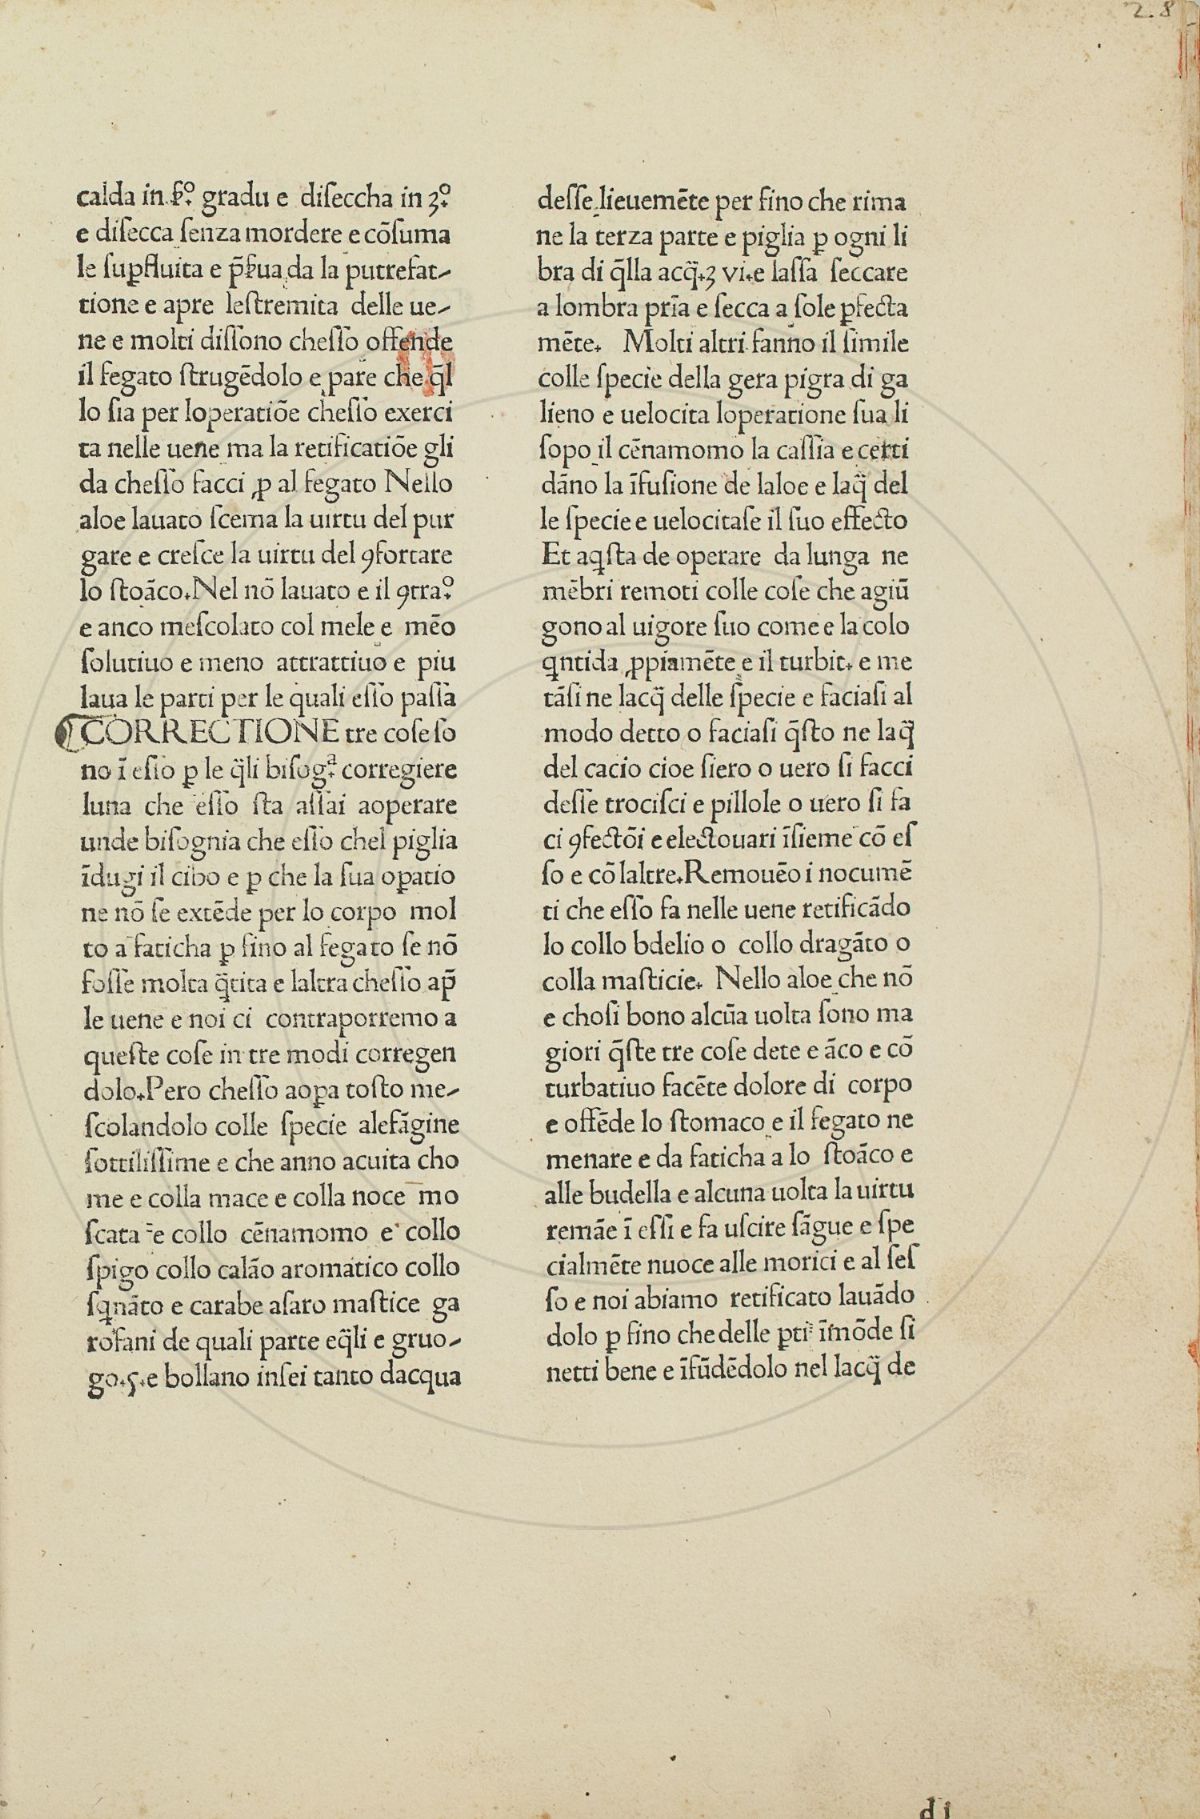 2.8
calda in pͦ. gradu e diſeccha in 3ͦ.
e diſecca ſenza mordere e cōſuma
le ſuꝑfluita e p̄ſua da la putrefat-
tione e apre leſtremita delle ue-
ne e molti diſſono cheſſo offende
il fegato ſtrugēdolo e pare che q̄l
lo ſia per loperatiōe cheſſo exerci
ta nelle uene ma la retificatiōe gli
da cheſſo facci ꝓ al fegato Nello
aloe lauato ſcema la uirtu del pur
gare e creſce la uirtu del ꝯfortare
lo ſtoāco. Nel nō lauato e il ꝯtraͦ.
e anco meſcolato col mele e mēo
ſolutiuo e meno attrattiuo e piu
laua le parti per le quali eſſo paſſa
¶CORRECTIONE tre coſe ſo
no ī eſſo ꝑ le q̄li biſogᷓ corregiere
luna che eſſo ſta aſſai aoperare
unde biſognia che eſſo chel piglia
īdugi il cibo e ꝑ che la ſua oꝑatio
ne nō ſe extēde per lo corpo mol
to a faticha ꝑ fino al fegato ſe nō
foſſe molta q̄tita e laltra cheſſo ap̄
le uene e noi ci contraporremo a
queſte coſe in tre modi corregen
dolo. Pero cheſſo aoꝑa toſto me-
ſcolandolo colle ſpecie alefāgine
ſottiliſſime e che anno acuita cho
me e colla mace e colla noce mo
ſcata e collo cēnamomo e collo
ſpigo collo calāo aromatico collo
ſqnāto e carabe aſaro maſtice ga
rofani de quali parte eq̄li e gruo-
go.ʒ.e bollano inſei tanto dacqua
deſſe lieuemēte per fino che rima
ne la terza parte e piglia ꝑ ogni li
bra di q̄lla acq̄.ʒ vi.e laſſa ſeccare
a lombra prīa e ſecca a ſole ꝑfecta
mēte. Molti altri fanno il ſimile
colle ſpecie della gera pigra di ga
lieno e uelocita loperatione ſua li
ſopo il cēnamomo la caſſia e certi
dāno la īfuſione de laloe e laq̄ del
le ſpecie e uelocitaſe il ſuo effecto
Et aq̄ſta de operare da lunga ne
mēbri remoti colle coſe che agiū
gono al uigore ſuo come e la colo
qntida ꝓpiamēte e il turbit. e me
tāſi ne lacq̄ delle ſpecie e faciaſi al
modo detto o faciaſi q̄ſto ne laq̄
del cacio cioe ſiero o uero ſi facci
deſſe trociſci e pillole o uero ſi fa
ci ꝯfectōi e electouari īſieme cō eſ
ſo e cō laltre. Remouēo i nocumē
ti che eſſo fa nelle uene retificādo
lo collo bdelio o collo dragāto o
colla maſticie. Nello aloe che nō
e choſi bono alcūa uolta ſono ma
giori q̄ſte tre coſe dete e āco e cō
turbatiuo facēte dolore di corpo
e offēde lo ſtomaco e il fegato ne
menare e da faticha a lo ſtoāco e
alle budella e alcuna uolta la uirtu
remāe ī eſſi e fa uſcire ſāgue e ſpe
cialmēte nuoce alle morici e al ſeſ
ſo e noi abiamo retificato lauādo
dolo ꝑ fino che delle ꝑti īmōde ſi
netti bene e īfūdēdolo nel lacq̄ de
d i